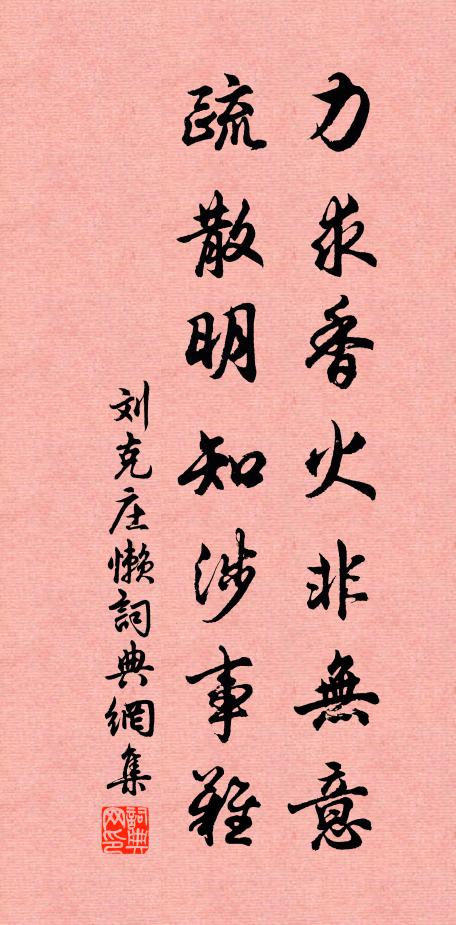 力求香火非無意
疏散明知涉事難
刘克庄懒詞典網集
詞典网印